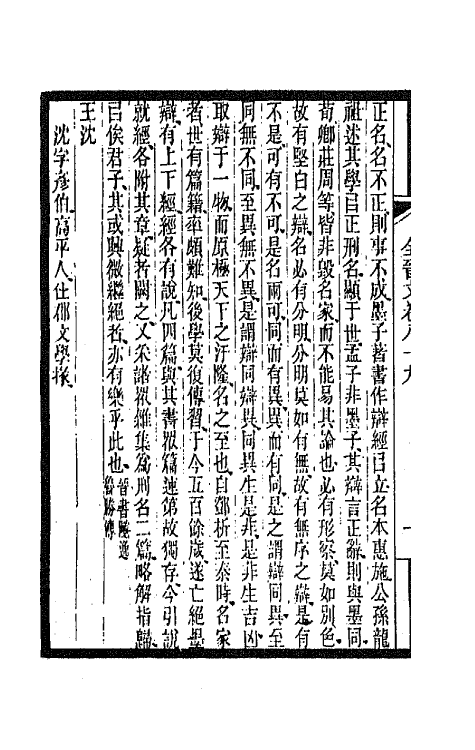 全晉文卷八十九
一
正名、名不正則事不成墨子著書作辯經㠯立名本惠施公孫龍
祖述其學㠯正刑名顯于世孟子非墨子其辯言正辭則與墨同
荀卿莊周等皆非毀名家而不能易其論也必有形察莫如別色
故有堅白之辯名必有分明分明莫如有無故有無序之辯是有
不是可有不可是名兩可同而有異異而有同是之謂辯同異至
同無不同至異無不異是謂辯同辯異同異生是非是非生吉凶
取辯于一物而原極天下之汙隆名之至也自鄧析至秦時名家
者世有篇籍率頗難知後學莫復傳習于今五百餘歲遂亡絕墨
辯有上下經經各有說凡四篇與其書眾篇連第故獨存今引說
就經各附其章疑者闕之又采諸眾雜集為刑名二篇略解指歸
㠯俟君子其或興微繼絕者亦有樂乎此也晉書隱逸魯勝傳
王沈
沈字彥伯高平人仕郡文學掾